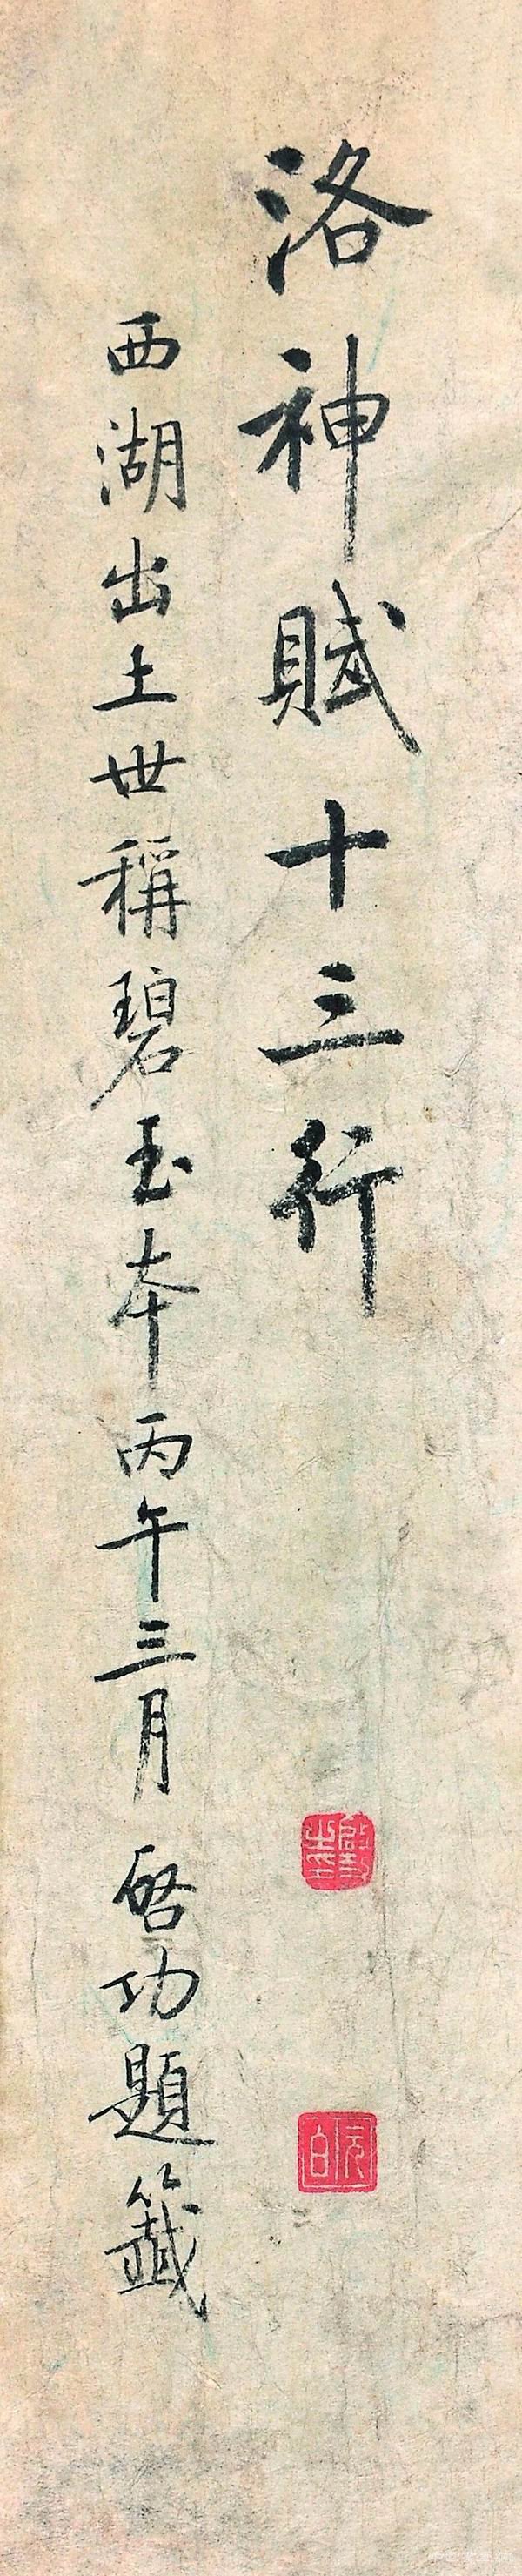 洛神賦十三行
西湖出土世稱碧玉本丙午三月 啓功題籤
元白